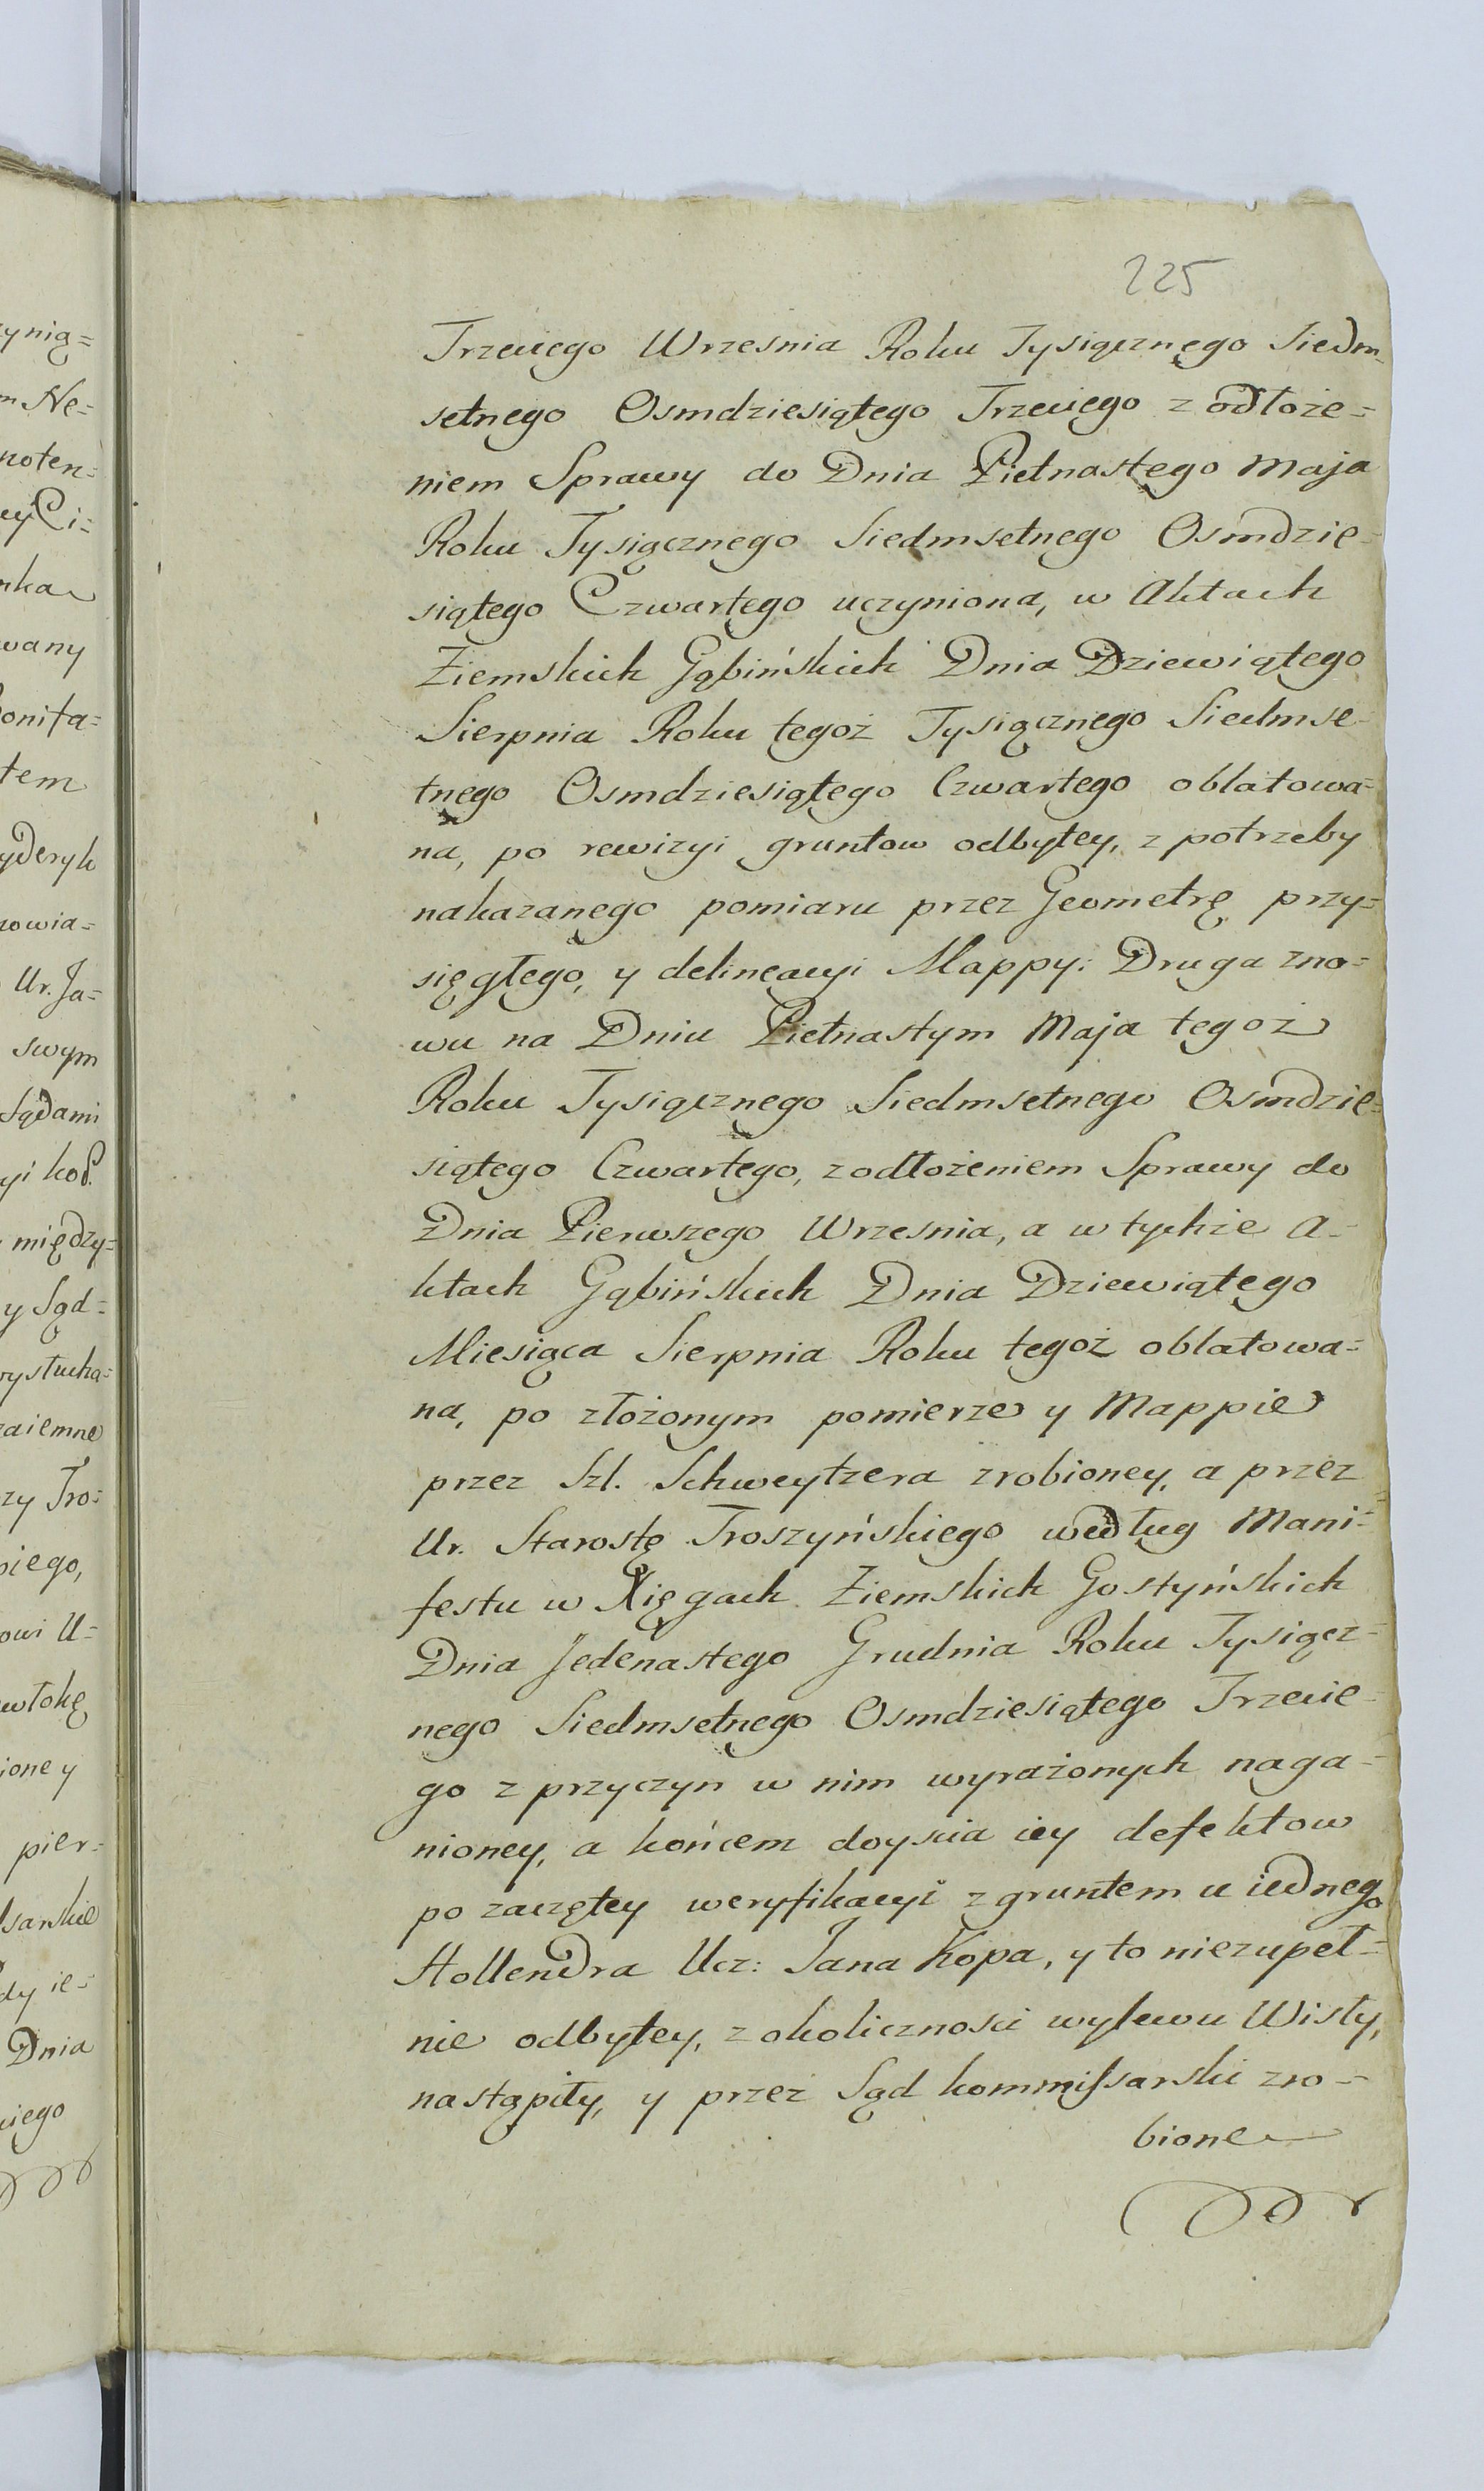 225
Trzeciego Wrzesnia Roku Tysiącznego Siedm-
setnego Osmdziesiątego Trzeciego z odłoże=
niem Sprawy do Dnia Piętnastego Maja
Roku Tysiącznego Siedmsetnego Osmdzie-
siątego Czwartego uczyniona, w Aktach
Ziemskich Gąbińskich Dnia Dziewiątego
Sierpnia Roku tegoż Tysiącznego Siedmse-
tnego Osmdziesiątego Czwartego oblatowa=
na, po rewizyi gruntow odbytey, z potrzeby
nakazanego pomiaru przez Geometrę przy=
sięgłego, y delineacyi Mappy: Druga zno=
wu na Dniu Piętnastym Maja tegoż
Roku Tysiącznego Siedmsetnego Osmdzie=
siątego Czwartego, z odłożeniem Sprawy do
Dnia Pierwszego Wrzesnia, a w tychże A-
ktach Gąbińskich Dnia Dziewiątego
Miesiąca Sierpnia Roku tegoż oblatowa=
na, po złożonym pomierze y Mappie
przez Szl. Schweytzera zrobioney, a przez
Ur. Starostę Troszyńskiego według Mani=
festu w Xięgach Ziemskich Gostyńskich
Dnia Jedenastego Grudnia Roku Tysiącz=
nego Siedmsetnego Osmdziesiątego Trzecie-
go z przyczyn w nim wyrażonych naga=
nioney, a końcem doyscia iey defektow
po zaczętey weryfikacyi z gruntem u iednego
Hollendra Ucz: Jana Kopa, y to niezupeł=
nie odbytey, z okolicznosci wylewu Wisły,
nastąpiły, y przez Sąd kommissarski zro=
bione
ynią=
m Ne=
noten=
cyi Ci=
nka
wany
Bonifa=
tem
yderyk
nowia=
Ur. Ja=
swym
Sądami
yi kod.
między=
y Sąd=
wysłucha=
zaiemne
zy Tro=
piego,
owi U=
włokę
ioney
pier=
sarskie
dy ie=
Dnia
ciego